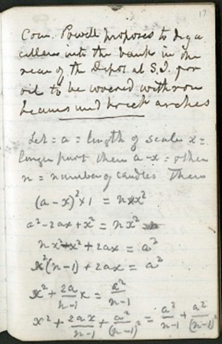 17
Com. Powell proposes to dig a
cellar into the bank in the
rear of the Depot at S.I. for
oil to be covered with iron
beams and brick arches
Let = a = length of scale x =
longer part then a-x = other
n = number of candles Then
(a-x)² × 1 = nx²
a² - 2ax + x² = nx²
nx² - x² + 2ax = a²
x²(n-1) + 2ax = a²
x² + 2a/n-1 x = a²/n-1
x² + 2ax/n-1 + a²/(n-1)² = a²/n-1 + a²/(n-1)²